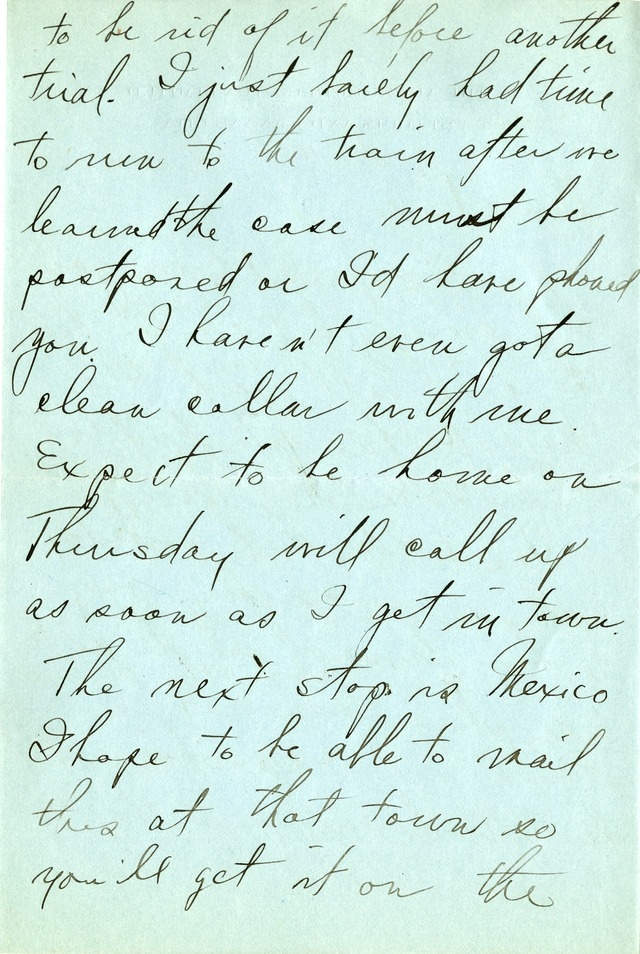 to be rid of it before another
trial. I just barely had time
to run to the train after we
learned the case must be
postponed or I'd have phoned
you. I haven't even got a
clean collar with me.
Expect to be home on
Thursday will call up
as soon as I get in town.
The next stop is Mexico
I hope to be able to mail
this at that town so
you'll get it on the